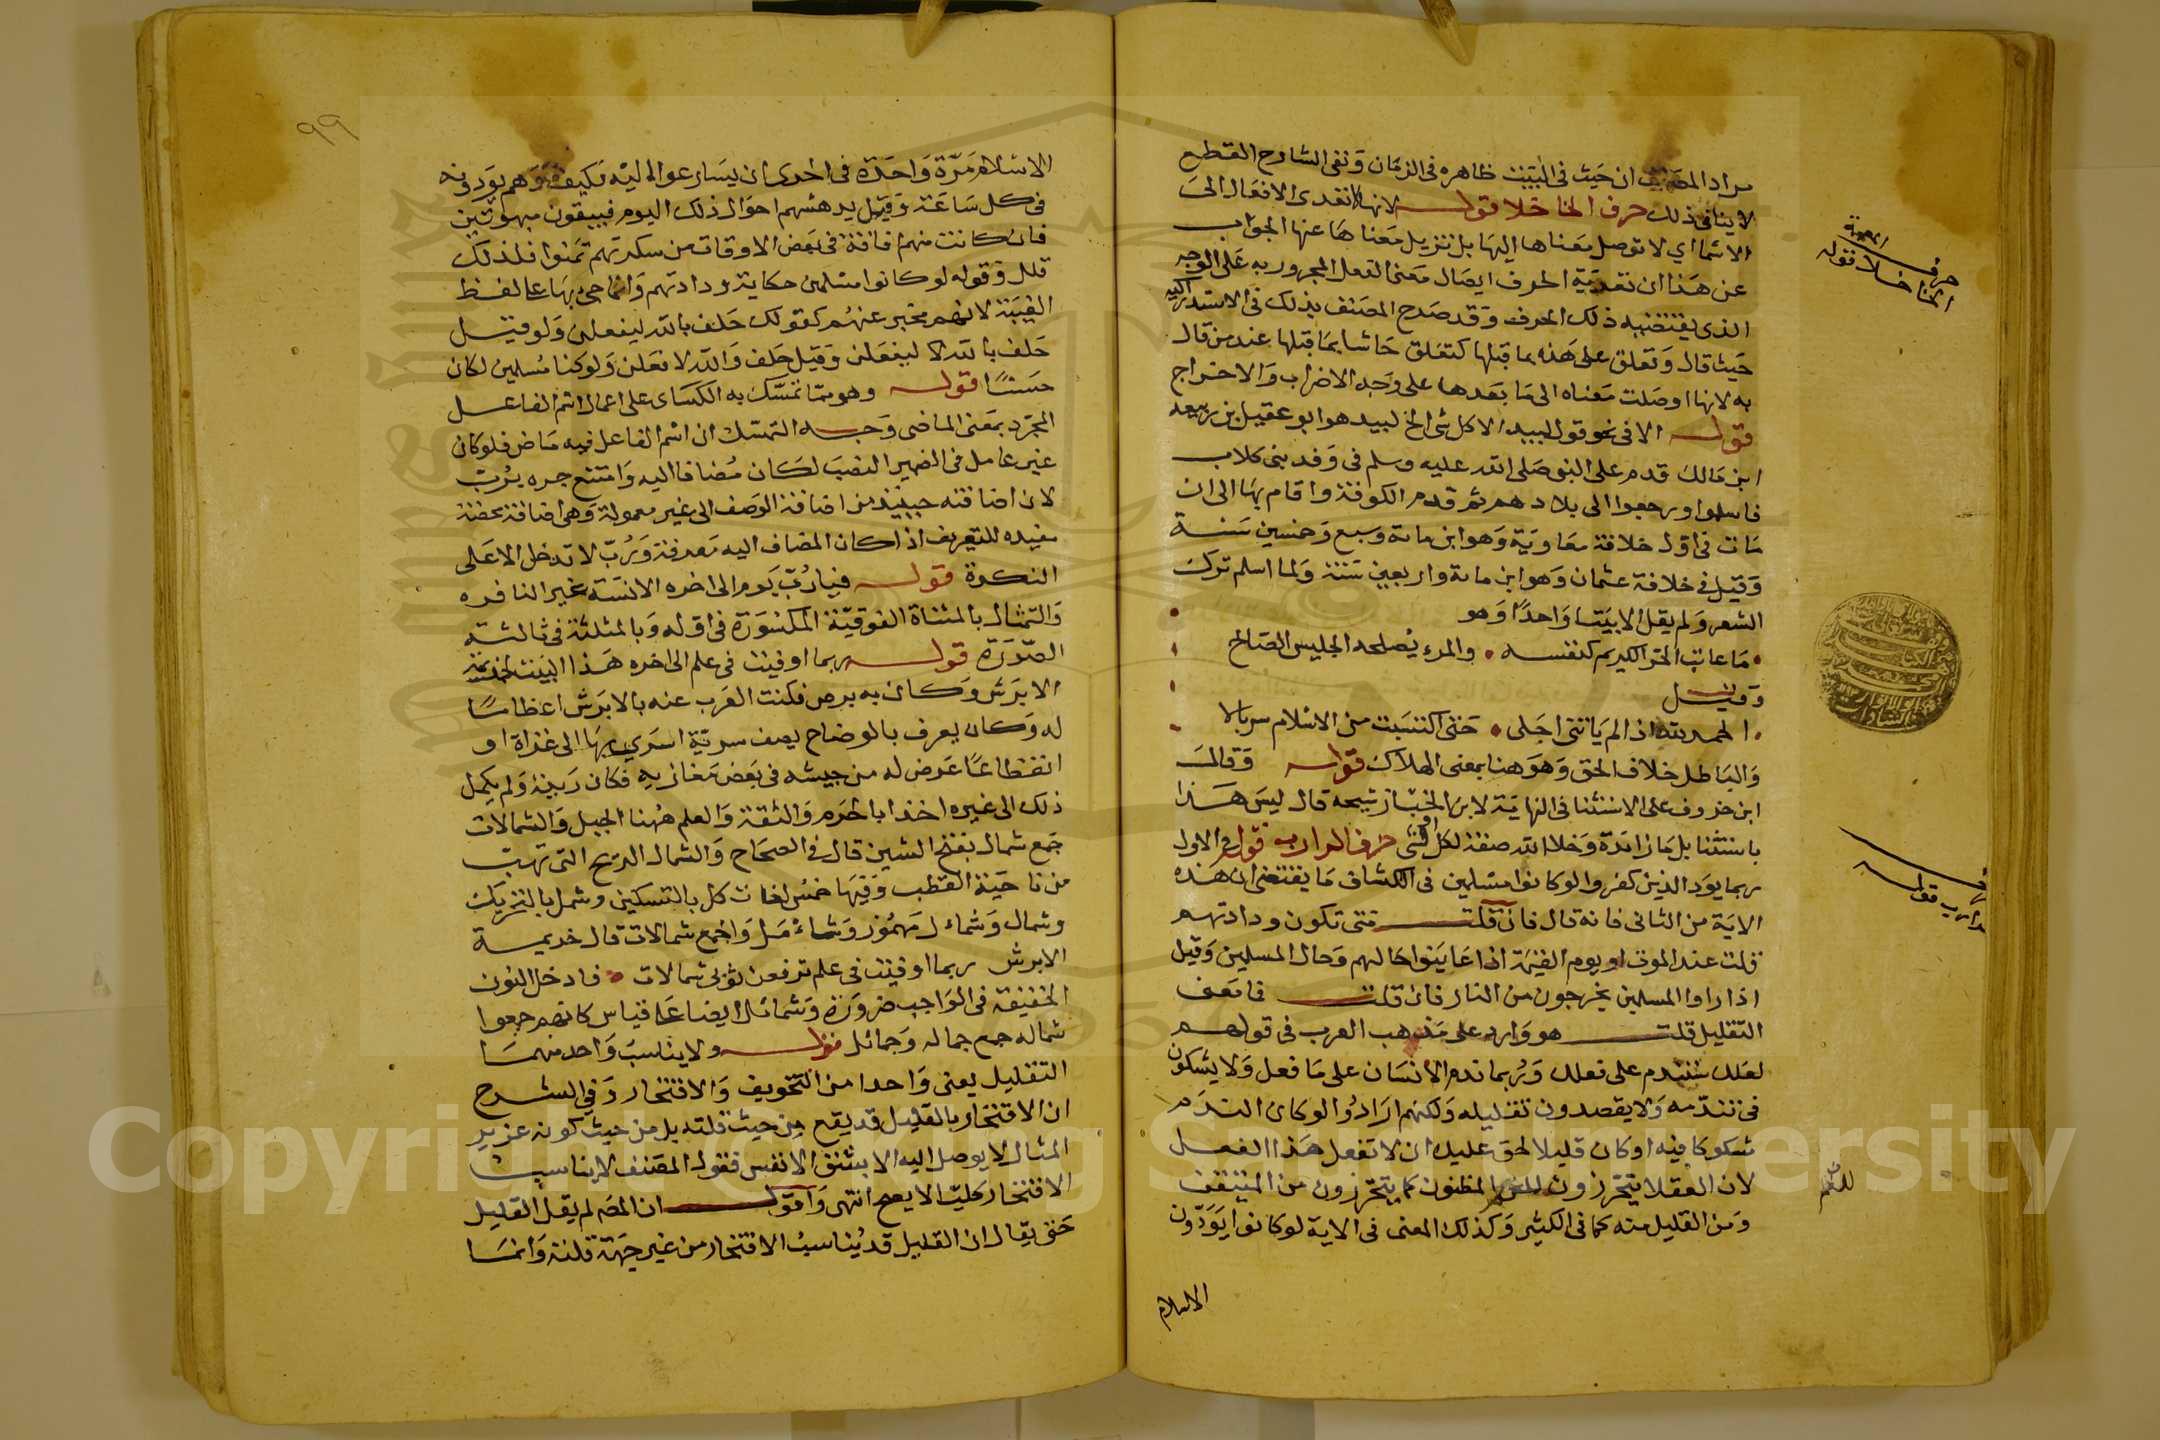 مراد المصنف ان حيث في البيت ظاهره في الزمان ونفي الشارح القطع
لا ينافي ذلك حرف الخا خلا قوله لانها لا تعدى الافعال الى
الاسما اي لا توصل معناها اليها بل تزيل معناها عنها الجواب
عن هذا ان تعدية الحرف ايصال معنى الفعل المجرور به على الوجه
الذي يقتضيه ذلك الحرف وقد صرح المصنف بذلك في الاستدراكيه
حيث قال وتعلق على هذه بما قبلها كتعلق حاشا بما قبلها عند من قال
به لانها اوصلت معناه الى ما بعدها على وجه الاضراب والاخراج
قوله الا في نحو قول لبيد الا كل شى الخ لبيد هو ابو عقيل بن ربيعه
ابن مالك قدم على النبي صلى الله عليه وسلم في وفد بني كلاب
فاسلموا ورجعوا الى بلادهم ثم قدم الكوفة واقام بها الى ان
مات في اول خلافة معاوية وهو ابن مائة وسبع وخمسين سنة
وقيل في خلافة عثمان وهو ابن مائة واربعين سنة ولما اسلم ترك
الشعر ولم يقل الا بيتا واحدا وهو
ما عاتب الحر الكريم كنفسه والمرء يصلحه الجليس الصالح
وقيل
الحمد لله اذ لم ياتني اجلى حتى اكتسبت من الاسلام سربالا
والباطل خلاف الحق وهو هنا بمعنى الهلاك قوله وقال
ابن خروف على الاستثنا في النهاية لابن الخباز شيحه قال ليس هذا
باستثنا بل ما زائدة وخلا الله صفة لكل او شى حرف الرا رب قوله فمن الاول
ربما يود الذين كفروا لو كانوا مسلمين في الكشاف ما يقتضي ان هذه
الاية من الثاني فانه قال فان قلت متى تكون ودادتهم
قلت عند الموت او يوم القيمة اذا عاينوا حالهم وحال المسلمين وقيل
اذا راوا المسلمين يخرجون من النار فان قلت فما معنى
التقليل قلت هو وارد على مذهب العرب في قولهم
لعلك ستندم على فعلك وربما ندم الانسان على ما فعل ولا يشكون
في تندمه ولا يقصدون تقليله ولكنهم ارادوا لو كان الندم
مشكوكا فيه او كان قليلا لحق عليك ان لا تفعل هذا الفعل
لان العقلا يتحرزون المظنون كما يتحرزون من المتيقن
ومن القليل منه كما في الكثير وكذلك المعنى في الاية لو كانوا يودون
الاسلام
المعجمة
حرف
الخا خلا قوله
رب قوله
٩٩
الاسلام مرة واحدة في احرى ان يسارعوا اليه فكيف وهم يودونه
في كل ساعة وقيل يدهشهم احوال ذلك اليوم فيبقون مبهوتين
فان كانت منهم افاقة في بعض الاوقات من سكرتهم تمنوا فلذلك
قلل وقوله لو كانوا مسلمين حكاية ودادتهم وانما جئ بها على لفظ
الغيبة لانهم مخبر عنهم كقولك حلف بالله ليفعلن ولو قيل
حلف بالله لا ليفعلن وقيل حلف والله لافعلن ولو كنا مسلمين لكان
حسنا قوله وهو مما تمسك به الكساى على اعمال اسم الفاعل
المجرد بمعنى الماضى وجه التمسك ان اسم الفاعل فيه ماض فلو كان
غير عامل في الضمير النصب لكان مضافا اليه وامتنع جره برب
لان اضافته حينيذ من اضافة الوصف الى غير معمولة وهي اضافة محضة
مفيده للتعريف اذا كان المضاف اليه معرفة ورب لا تدخل الا على
النكرة قوله فيا رب يوم الى اخره الانسة غير النافره
والتمثال بالمثناة الفوقية المكسورة في اوله وبالمثلثة في ثالثه
الصورة قوله ربما اوفيت في علم الى اخره هذا البيت لجذيمة
الابرش وكان به برص فكنت العرب عنه بالابرش اعظاما
له وكان يعرف بالوضاح يصف سرية اسري بها الى غزاة او
انقطاعا عرض له من جيشه في بعض مغازيه فكان ربيئة ولم يكمل
ذلك الى غيره اخذا با حزم والثقة والعلم ههنا الجبل والشمالات
جمع شمال بفتح الشين قال في الصحاح والشمال الريح التي تهب
من ناحية القطب وفيها خمس لغات شمل بالتسكين وشمل بالتحريك
وشمال وشمائل مهموز وشامل والجمع شمالات قال خديمة
الابرش ربما اوفيت في علم ترفعن ثوبى شمالات فادخل النون
الخفيفة في الواجب ضرورة وشمائل ايضا على قياس كانهم جمعوا
شماله جمع جماله وجمائل قوله ولا يناسب واحد منهما
التقليل يعني واحدا من التخويف والافتخار وفي الشرح
ان الافتخار بالقليل قد يقع من حيث قلته بل من حيث كونه عزيز
المثال لا يوصل اليه الا بشق الانفس فقول المصنف لا يناسب
الافتخار كليا لا يصح انتهى واقول ان المصـ لم يقل القليل
حتى يقال ان القليل قد يناسب الافتخار من غير جهة قلته وانما
Copyright © King Saud University